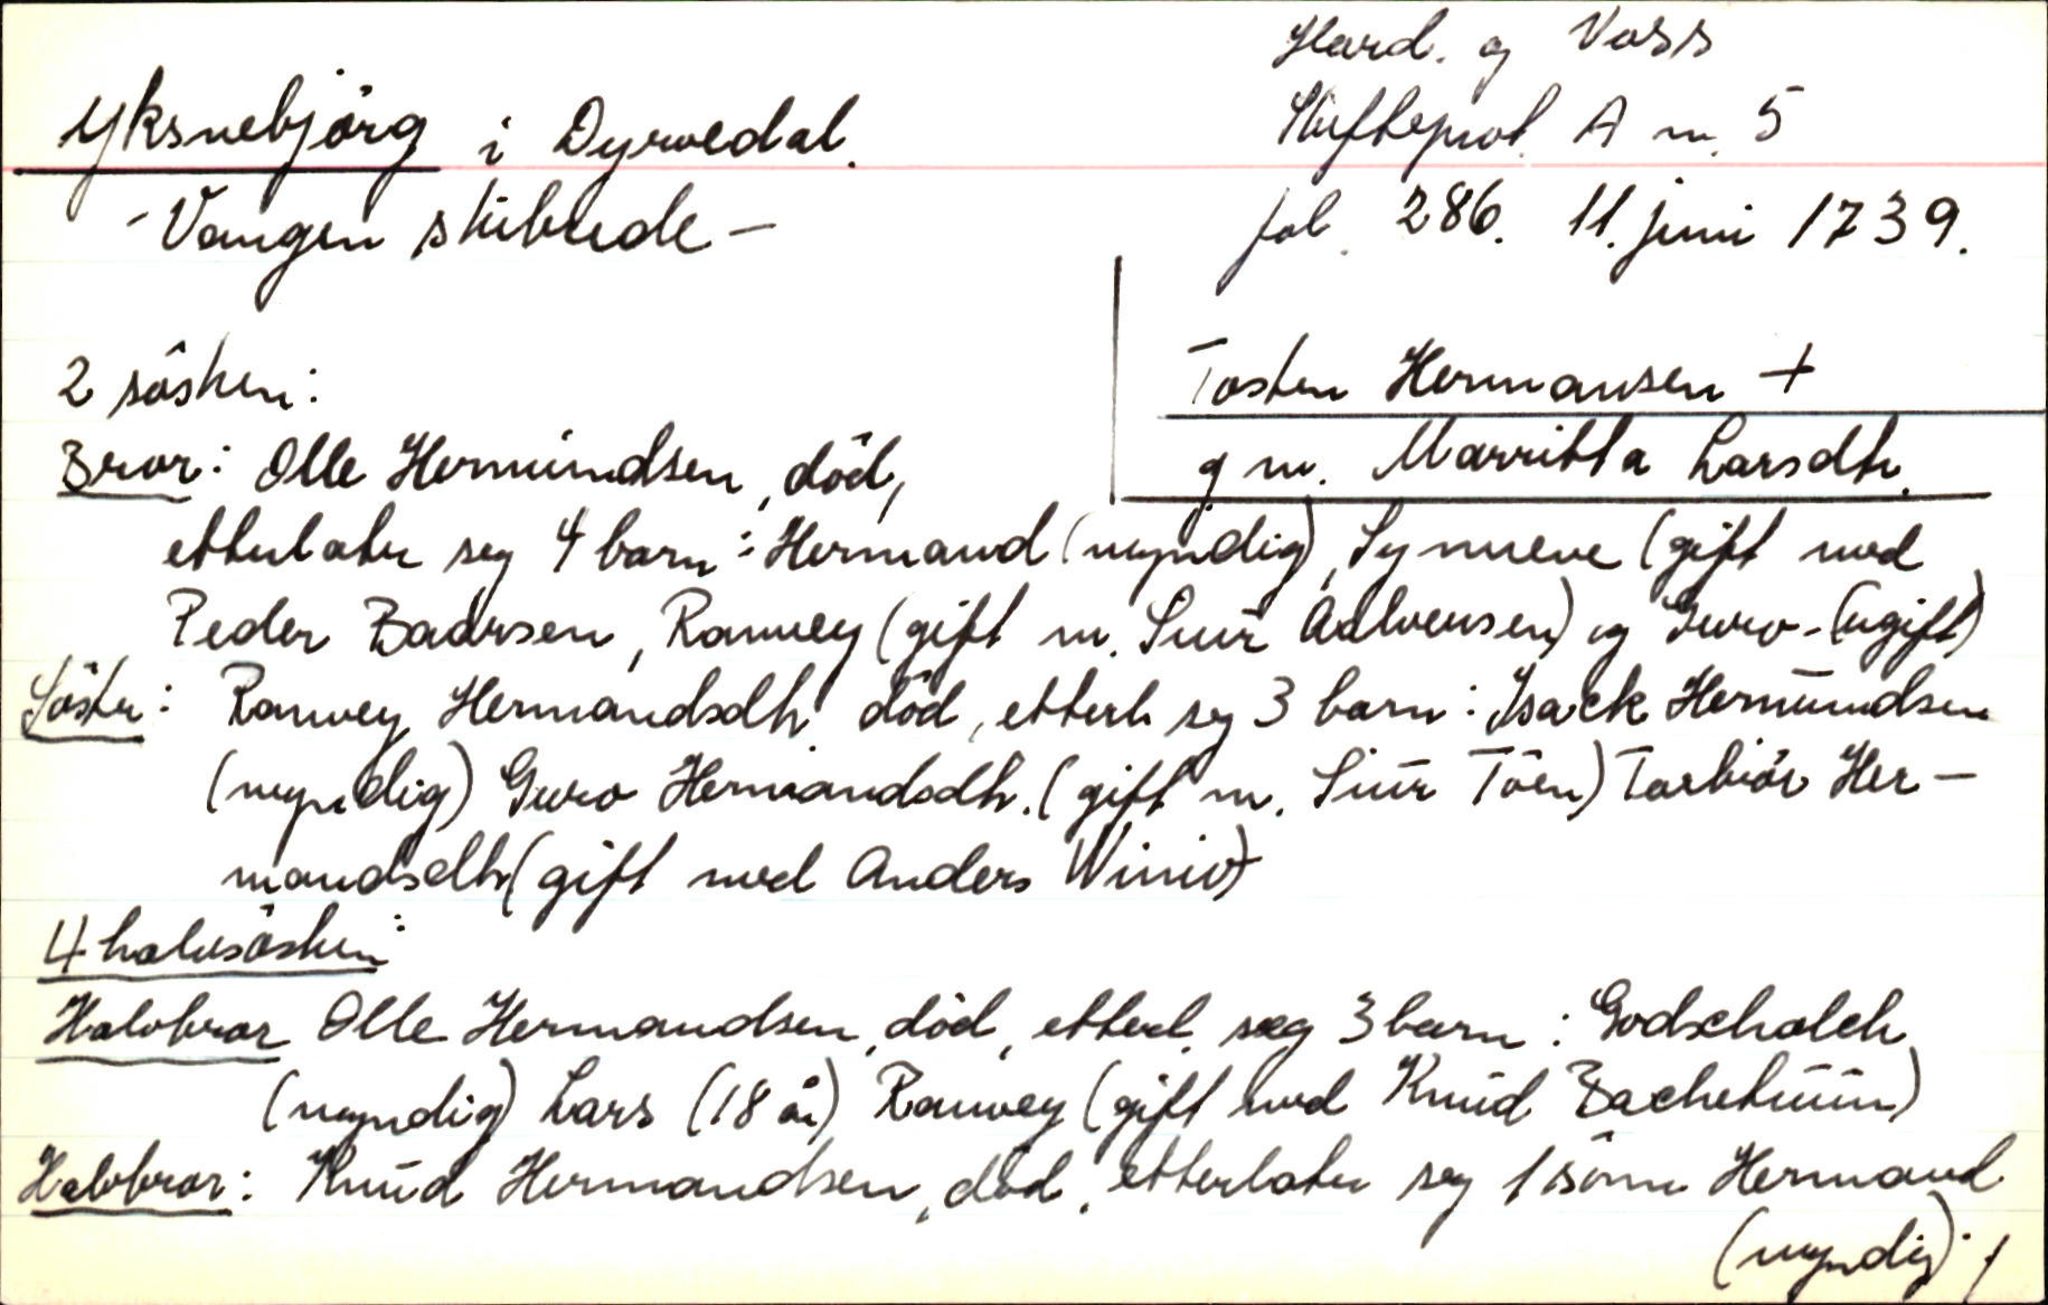 Yksnebjörg i Dyrvedal.
- Vangen skibrede -
Hard. og Voss
Skifteprot. A nr. 5
fol. 286. 11. juni 1739.
Tosten Hermansen +
g m. Marritta Larsdtr.
2 sösken:
Bror: Olle Hermundsen, död,
etterlater seg 4 barn: Hermand (myndig), Synneve (gift med
Peder Badrsen, Ranvey (gift m. Siur Adlvensen) og Guro - (ugift)
Söster: Ranvey Hermandsdtr. död, etterl. seg 3 barn: Isack Hermundsen
(myndig) Guro Hermandsdtr. (gift m. Siur Töen) Torbiör Her-
mandsdtr (gift med Anders Winie)
4 halvsösken:
Halvbror Olle Hermandsen, död, etterl. seg 3 barn: Godschalch
(myndig) Lars (18 år) Ranvey (gift med Knud Bachetuun)
Halvbror: Knud Hermandsen, död, etterlater seg 1 sönn Hermand
(myndig). /